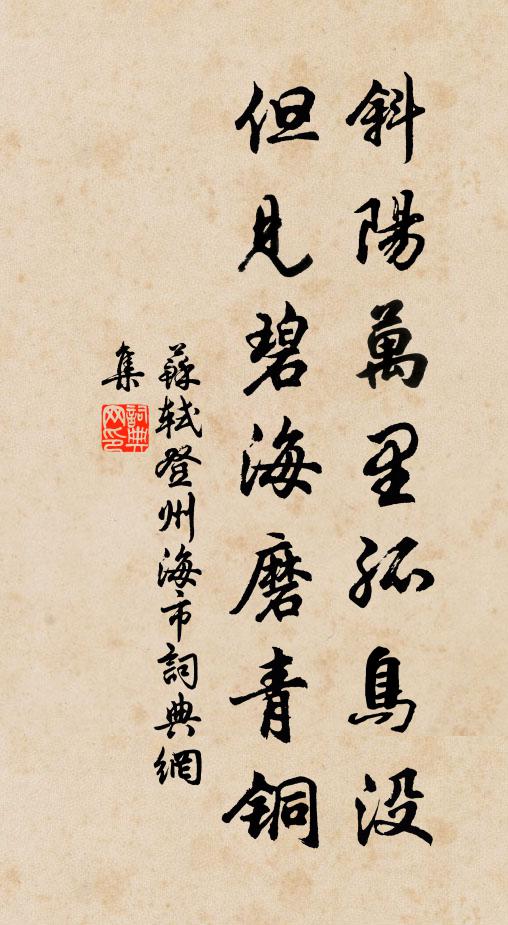 斜陽萬里孤鳥没
但見碧海磨青铜
蘇軾登州海市詞典網
集
詞典网印